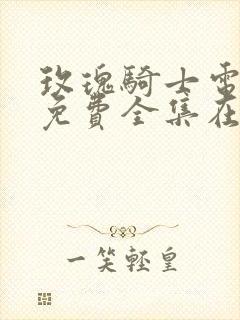 玫瑰騎士電
免費全集在
一笑輕皇